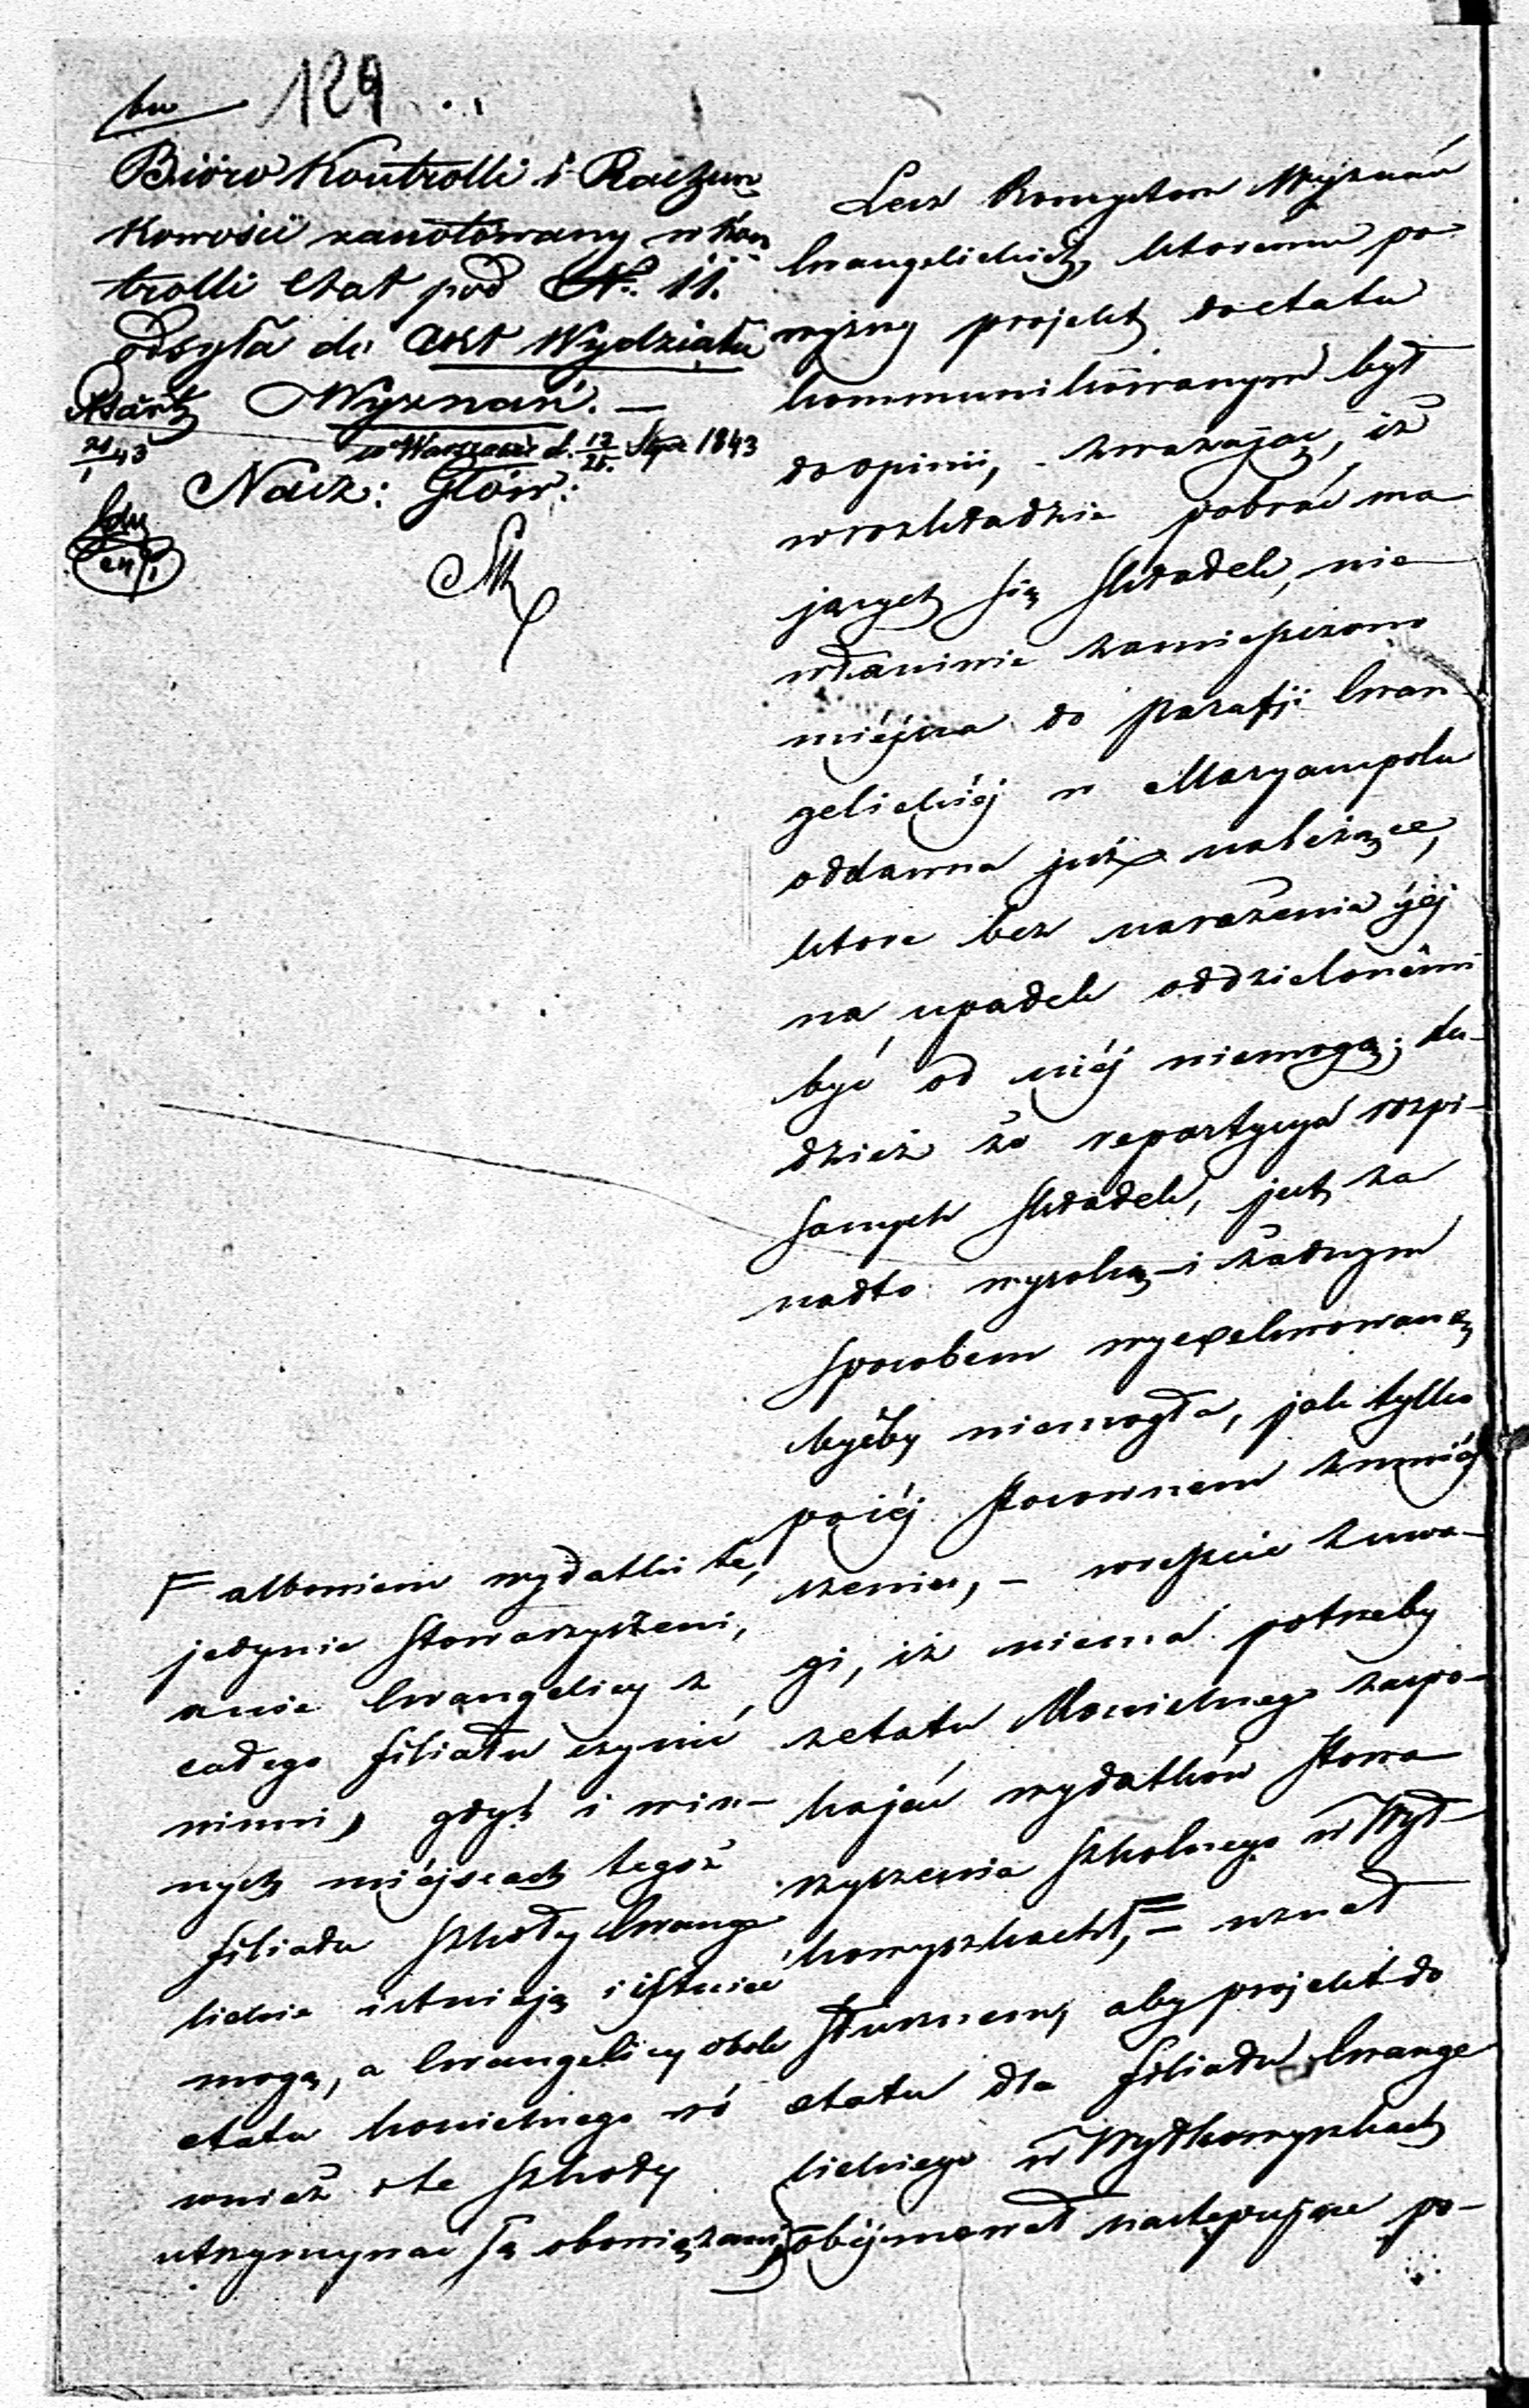 129
Bióro Kontrolli i Rachun
kowości zanotowany w Kon
trolli etat pod N. 11.
odsyła do Akt Wydziału
Wyznań. —
w Warszawie d. 13/25. Stycz 1843
Nacz: Głów:
Lecz Konsystorz Wyznań
Ewangelickich, któremu po
wyższy projekt do etatu
kommunikowanym był
do opinii, - zważając, iż
w rozkładzie pobrać ma
jących się składek, nie
właściwie zamieszczono
miéjsca do parafji Ewan
gelickiéj w Maryampolu
oddawna już należące,
które bez narażenia jéj
na upadek oddzielonémi
być od niéj niemogą; tu-
dzież że repartycya rozpi-
sanych składek, jest za
nadto wysoką i żadnym
sposobem wyexekwowaną
byćby niemogła, jak tylko
po jéj stosownem zmniéj
szeniu, - wreszcie z uwa-
gi, iż niema potrzeby
z etatu Kościelnego zaspo-
kajać wydatków stowa
rzyszenia szkolnego w Wył-
kowyszkach, F – uznał
słusznem, aby projekt do
etatu dla filiału Ewange
lickiego w Wyłkowyszkach
obéjmował następujące po-
F albowiem wydatki te,
jedynie stowarzyszeni,
a nie Ewangelicy z
całego filiału czynić
winni, gdyż i w in-
nych miéjscach tegoż
filiału szkoły Ewange
lickie istnieją i istnieć
mogą, a Ewangelicy obok
etatu kościelnego ró
wnież i te szkoły
utrzymywać są obowiązani,